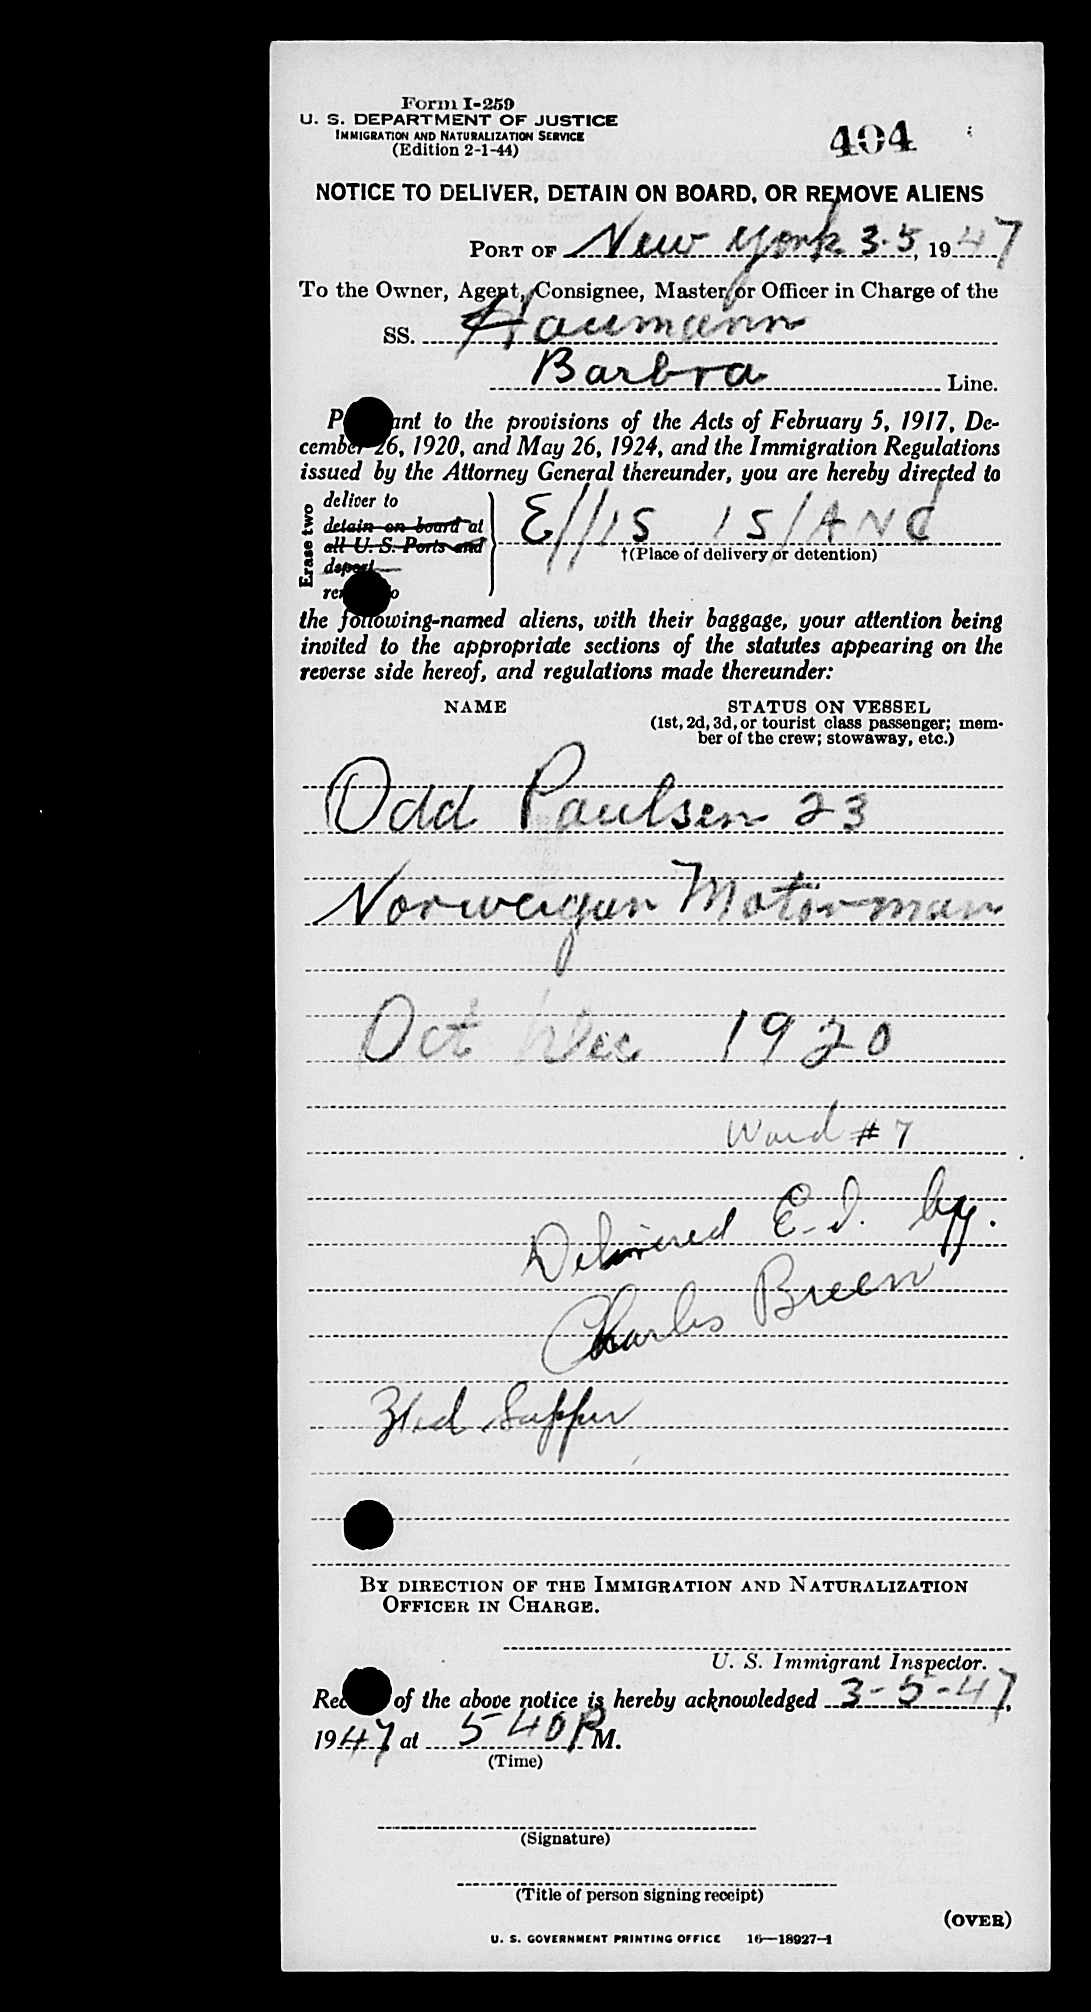 Form I-259
U. S. DEPARTMENT OF JUSTICE
IMMIGRATION AND NATURALIZATION SERVICE
(Edition 2-1-44)
404
NOTICE TO DELIVER, DETAIN ON BOARD, OR REMOVE ALIENS
PORT OF New York 3-5, 1947
To the Owner, Agent, Consignee, Master, or Officer in Charge of the
SS. Haumann
Barbra Line.
P ant to the provisions of the Acts of February 5, 1917, De-
cember 26, 1920, and May 26, 1924, and the Immigration Regulations
issued by the Attorney General thereunder, you are hereby directed to
Erase two
deliver to
detain on board at
all U. S. Ports and
deport
re o
Ellis Island
†(Place of delivery or detention)
the following-named aliens, with their baggage, your attention being
invited to the appropriate sections of the statutes appearing on the
reverse side hereof, and regulations made thereunder:
NAME STATUS ON VESSEL
(1st, 2d, 3d, or tourist class passenger; mem-
ber of the crew; stowaway, etc.)
Odd Paulsen 23
Norweigan Motorman
Oct Dec 1920
Ward #7
Delivered E-I. by.
Charles Breen
Supper
BY DIRECTION OF THE IMMIGRATION AND NATURALIZATION
OFFICER IN CHARGE.
U. S. Immigrant Inspector.
Rec of the above notice is hereby acknowledged 3-5-47,
1947 at 5 40 P M.
(Time)
(Signature)
(Title of person signing receipt)
(OVER)
U. S. GOVERNMENT PRINTING OFFICE 16—18927-1